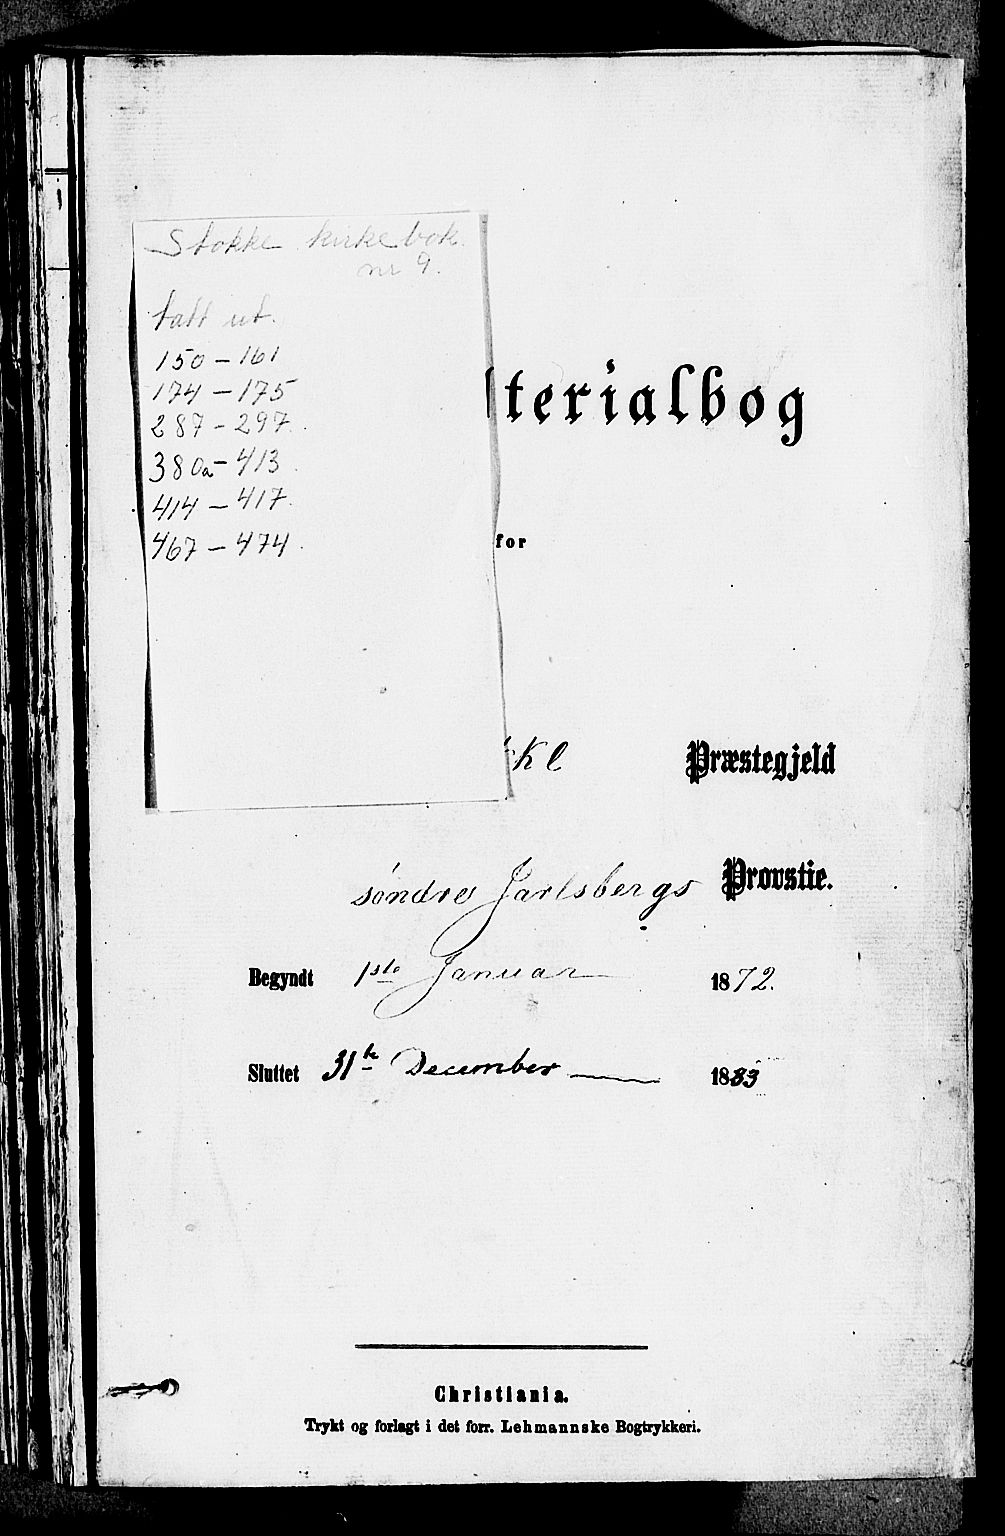 Stokke kirkebok.
nr 9.
tatt ut.
150 – 161
174 – 175
287 – 297.
380a – 413.
414 – 417.
467 – 474.
terialbog
for
kke Præstegjeld
søndre Jarlsbergs Provstie.
Begyndt 1ste Januar 1872.
Sluttet 31te December 1883
Christiania.
Trykt og forlagt i det forr. Lehmannske Bogtrykkeri.